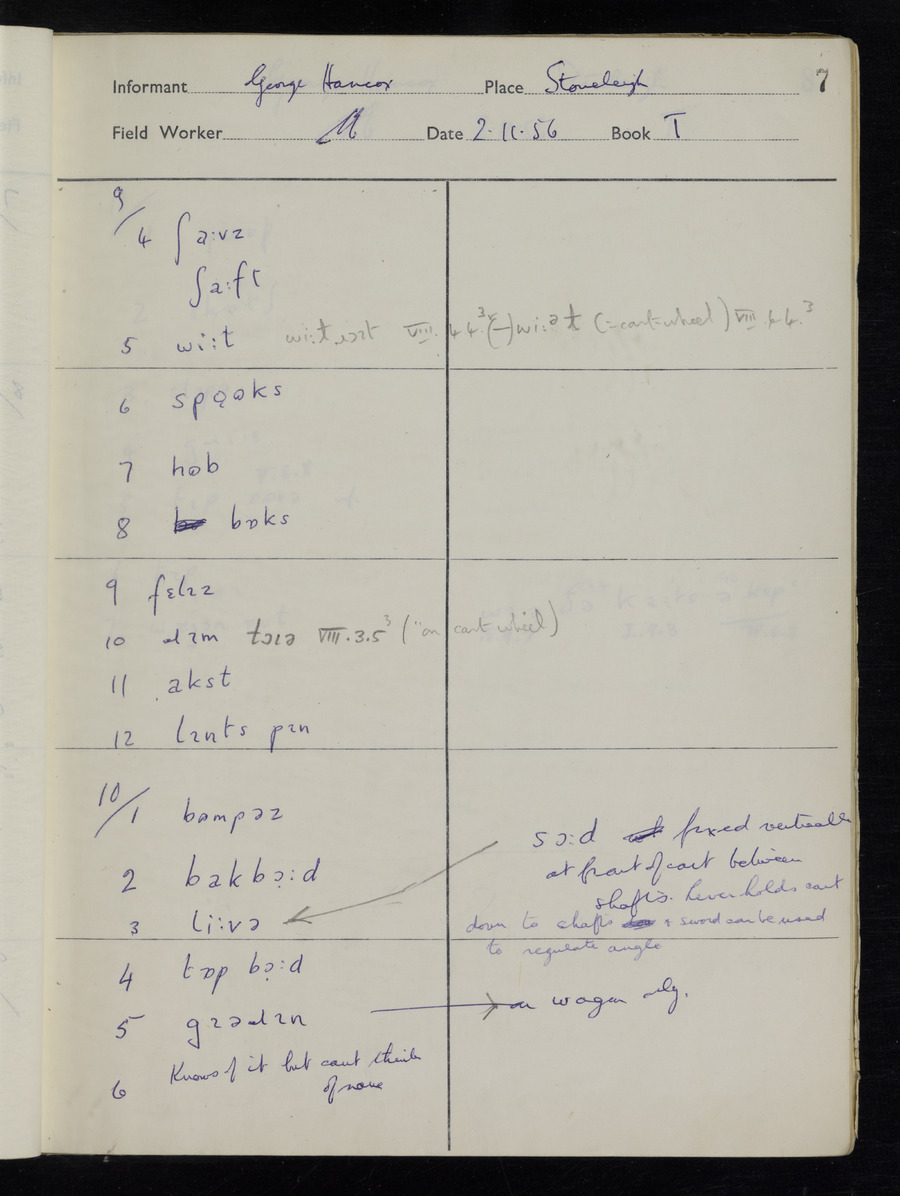 7
Informant George Hancox Place Stoneleigh
Field Worker Date 2·11·56 Book I
9/4 ʃa:vz
ʃa:ft
5 wi:t VIII. (-cart-wheel) VIII.
6 spɷ̨ɷks
7 hɒb
8 bɒks
9 fɛlɪz
10 ɹɪm tɔɪə VIII.3.5³ ("on cart wheel)
11 akst
12 lɪnts pɪn
10/1 bɷmpəz
2 bakbɔ̨:d
3 li:və
sɔ:d fixed vertically
at front of cart between
shafts. Lever holds cart
down to shafts & sword can be used
to regulate angle
4 tɒp bɔ̨:d
5 gɹəɹɪn → on wagon only.
6 Knows of it but cant think
of name